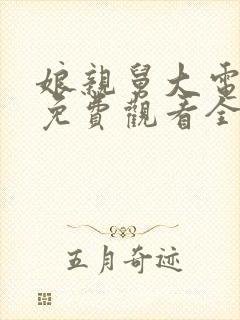 娘親舅大電
免費觀看全
五月奇迹